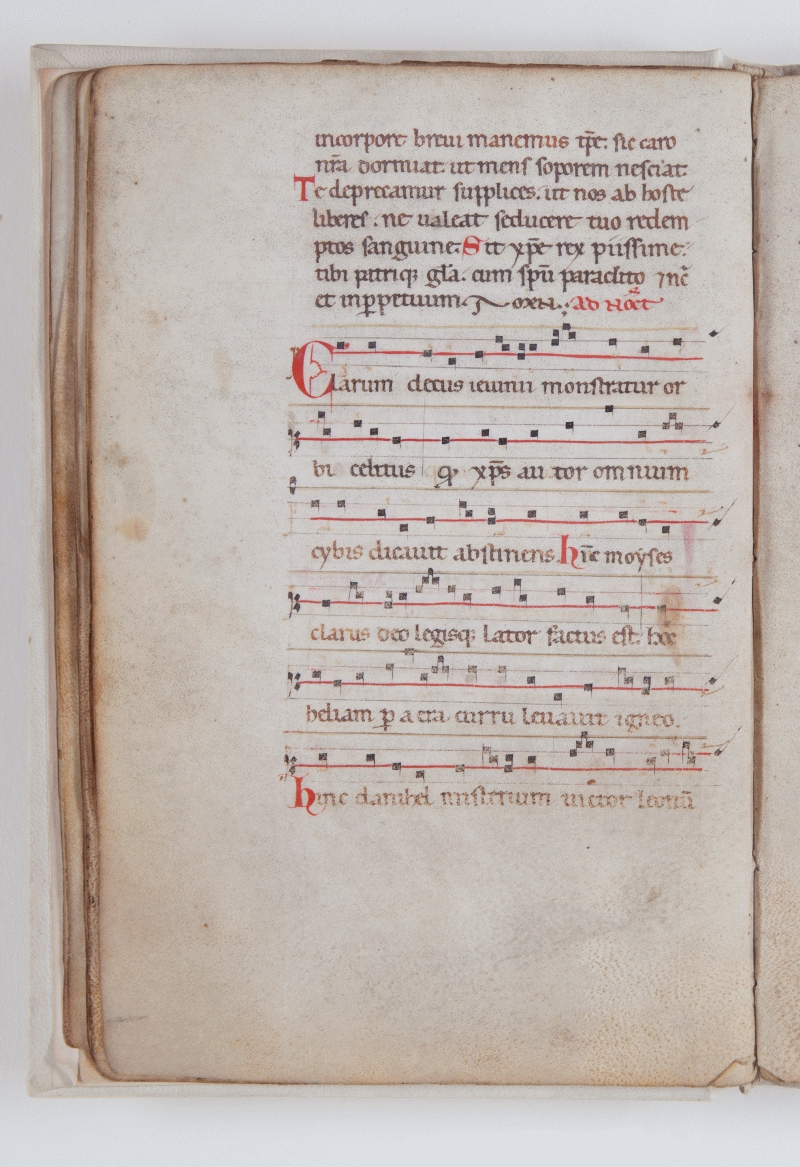 incorpore breui manemus tp̄re. sic caro
nr̄a dormiat. ut mens soporem nesciat.
Te deprecamur supplices. ut nos ab hoste
liberes. ne ualeat seducere tuo redem
ptos sanguine. Sit xp̄e rex piissime.
tibi patriq; gl̄a. cum sp̄u paraclito
et inp̱petuum. ad noct̄
Clarum decus ieiunii monstratur or
bi celitus xp̄s auctor omnium
cybis dicauit abstinens. hinc moyses
clarus deo legisq; lator factus est. hoc
heliam p̱ aera curru leuauit igneo.
hinc danihel misterium uictor leonū